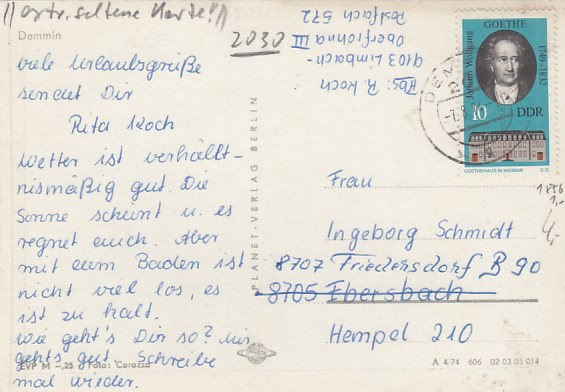 //extr. seltene Karte!//
Demmin
2030
viele Urlaubsgrüße
sendet Dir
Rita Koch
Wetter ist verhält-
nismäßig gut. Die
Sonne scheint u. es
regnet auch. Aber
mit dem Baden ist
nicht viel los, es
ist zu kalt.
Wie geht's Dir so? Mir
geht's gut. Schreibe
mal wieder.
EVP M –,25 Foto: Corazza
Abs: R. Koch
9103 Limbach-
Oberfrohna III
Postfach 572
PLANET-VERLAG BERLIN
Johann Wolfgang
GOETHE
1749-1832
10
DDR
GOETHEHAUS IN WEIMAR
1856
1,-
4,-
Frau
Ingeborg Schmidt
8707 Friedersdorf B 90
8705 Ebersbach
Hempel 210
A 4/74 606 02 03 03 014